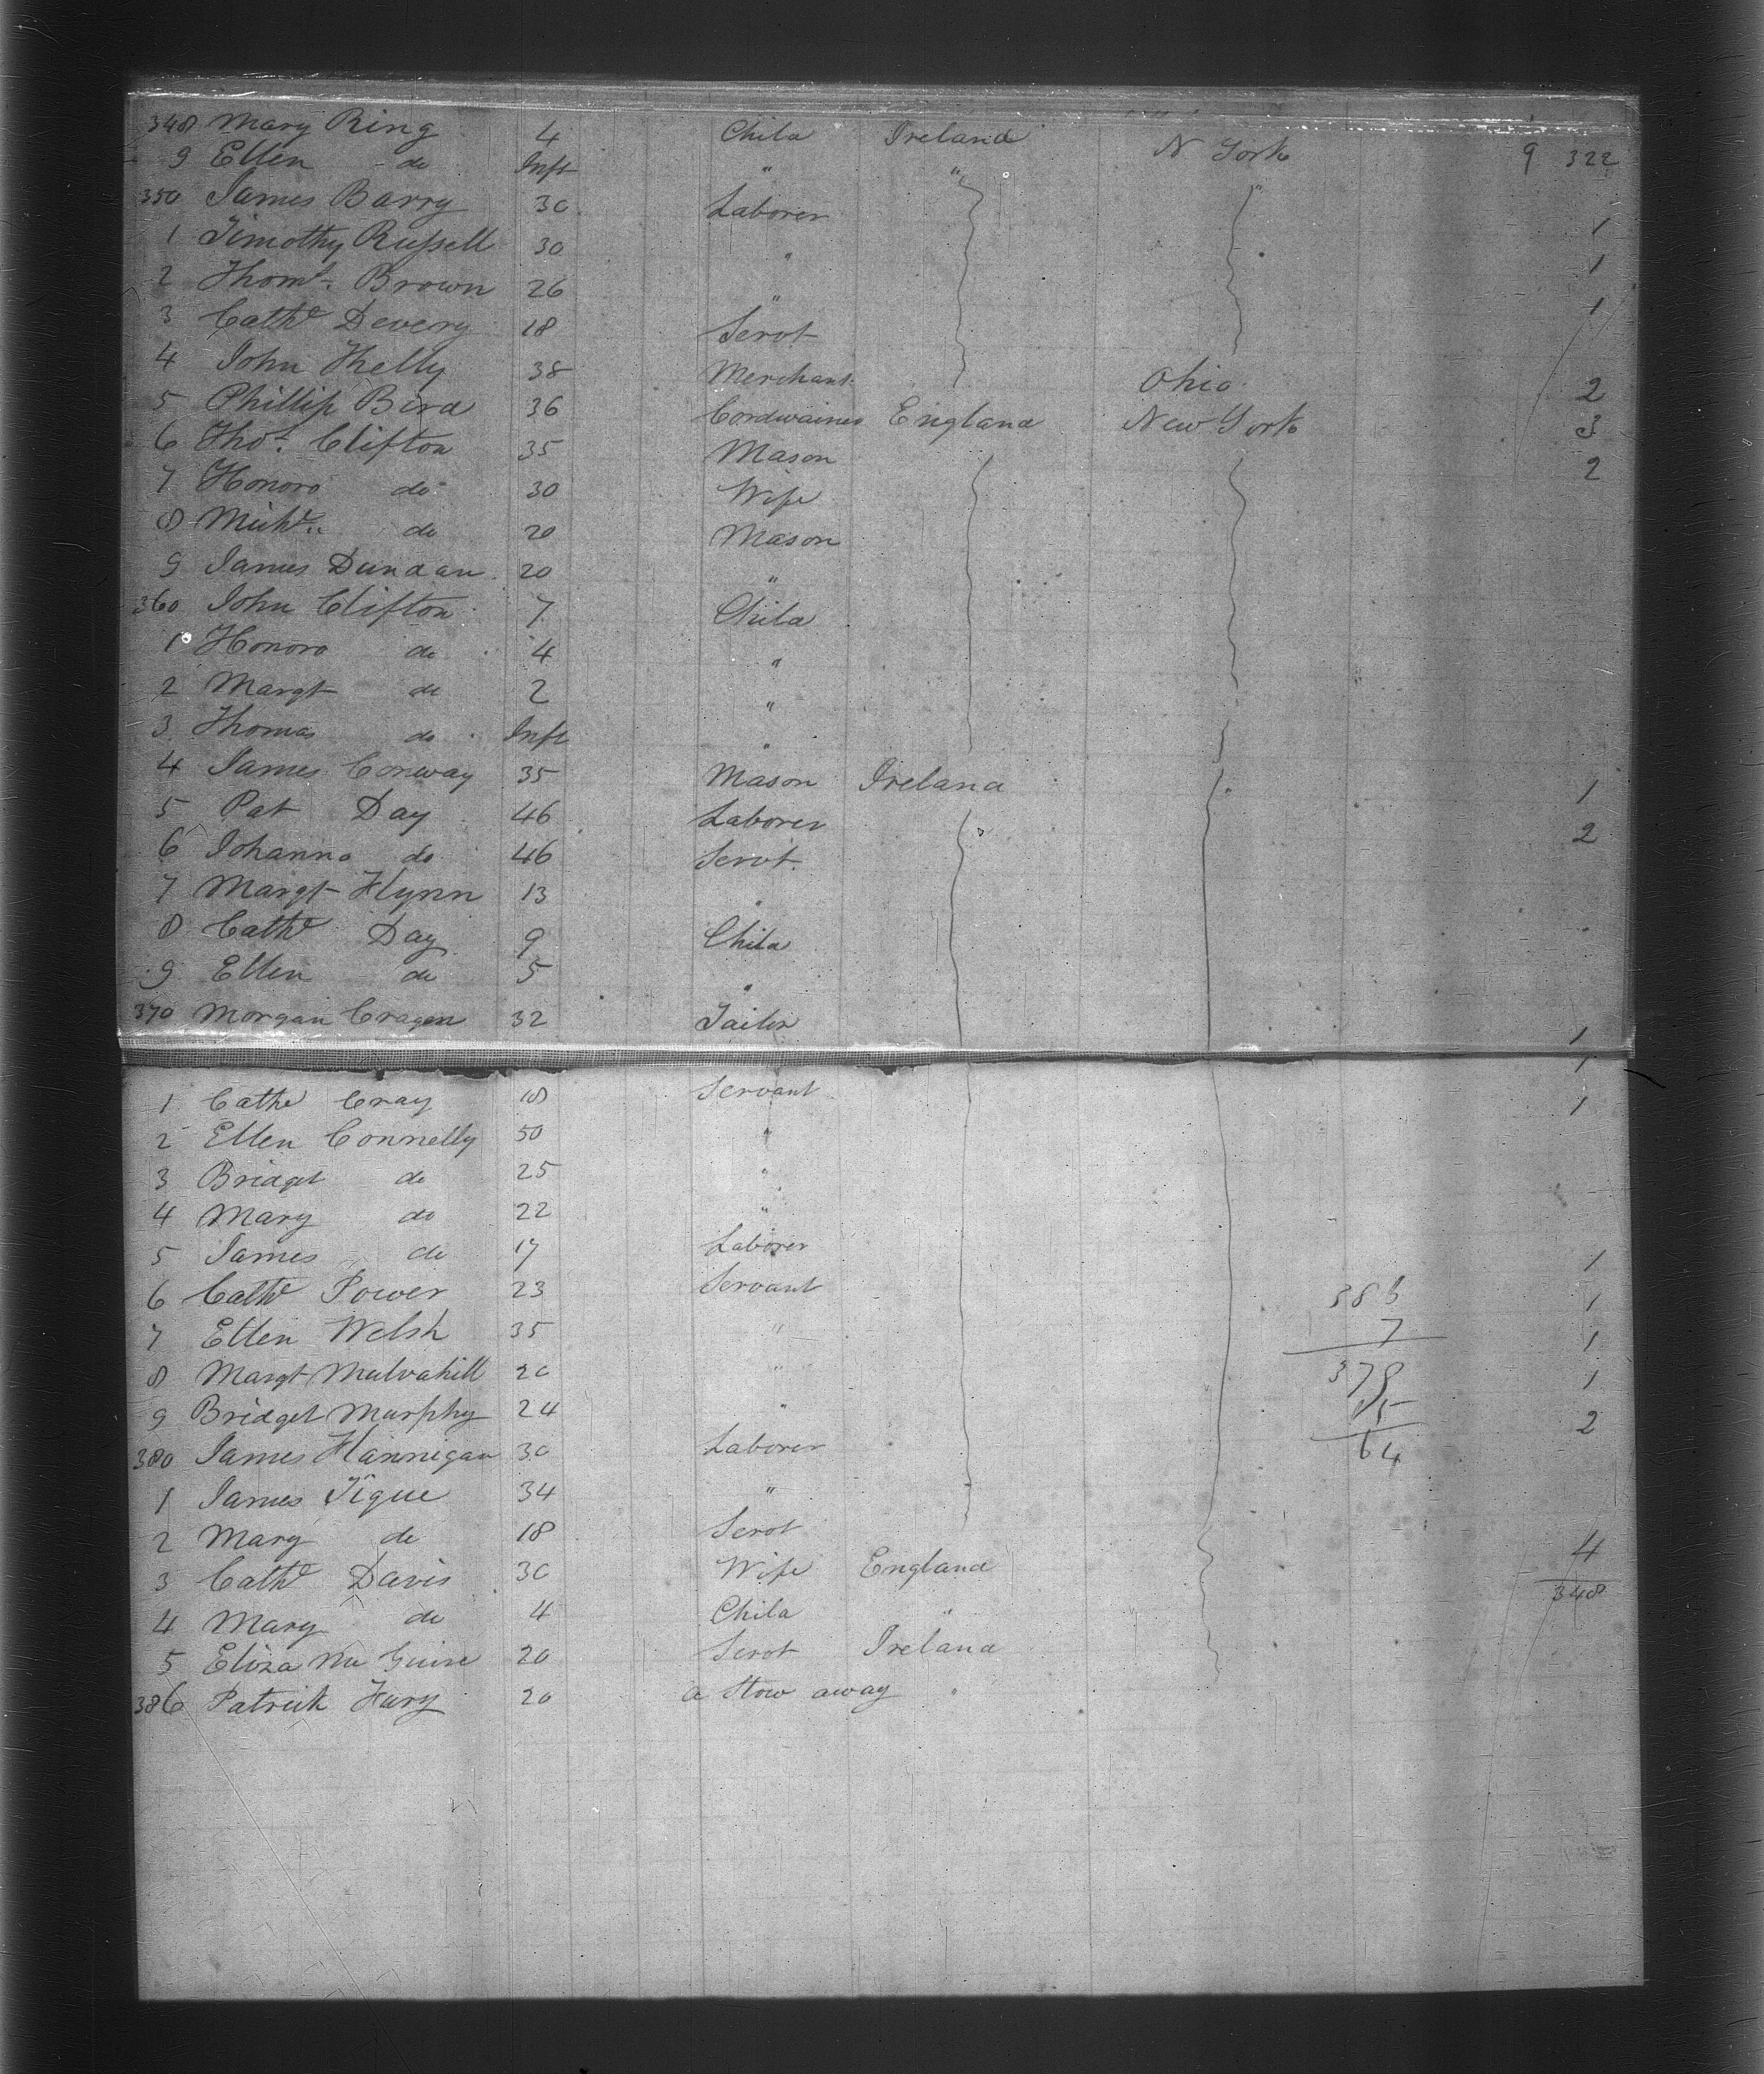 348 Mary Ring 4 Child Ireland N York 9 322
9 Ellen do Inft " " "
350 James Barry 30 Laborer 1
1 Timothy Russell 30 " 1
2 Thoms. Brown 26 " 1
3 Cathe Devery 18 Servt
4 John Kelly 38 Merchant Ohio 2
5 Phillip Bird 36 Cordwainer England New York 3
6 Thos. Clifton 35 Mason 2
7 Honoro do 30 Wife
8 Michl. do 20 Mason
9 James Dundan 20 "
360 John Clifton 7 Child
1 Honoro do 4 "
2 Margt do 2 "
3 Thomas do Inft "
4 James Conway 35 Mason Ireland 1
5 Pat Day 46 Laborer 2
6 Johanna do 46 Servt.
7 Margt Flynn 13 "
8 Cathe Day 9 Child
9 Ellen do 5 "
370 Morgan Cragen 32 Tailor 1
1
1 Cathe Cray 18 Servant 1
2 Ellen Connelly 50 "
3 Bridget do 25 "
4 Mary do 22 "
5 James do 17 Laborer 1
6 Cathe Power 23 Servant 386 1
7 Ellen Welsh 35 " 7 1
8 Margt Mulvahill 20 " 378 1
9 Bridget Murphy 24 " 15 2
380 James Hannigan 30 Laborer 64
1 James Tigue 34 "
2 Mary do 18 Servt 4
3 Cathe Davis 30 Wife England 348
4 Mary do 4 Child "
5 Eliza Mc Guire 20 Servt Ireland
386 Patrick Fury 20 a Stow away "